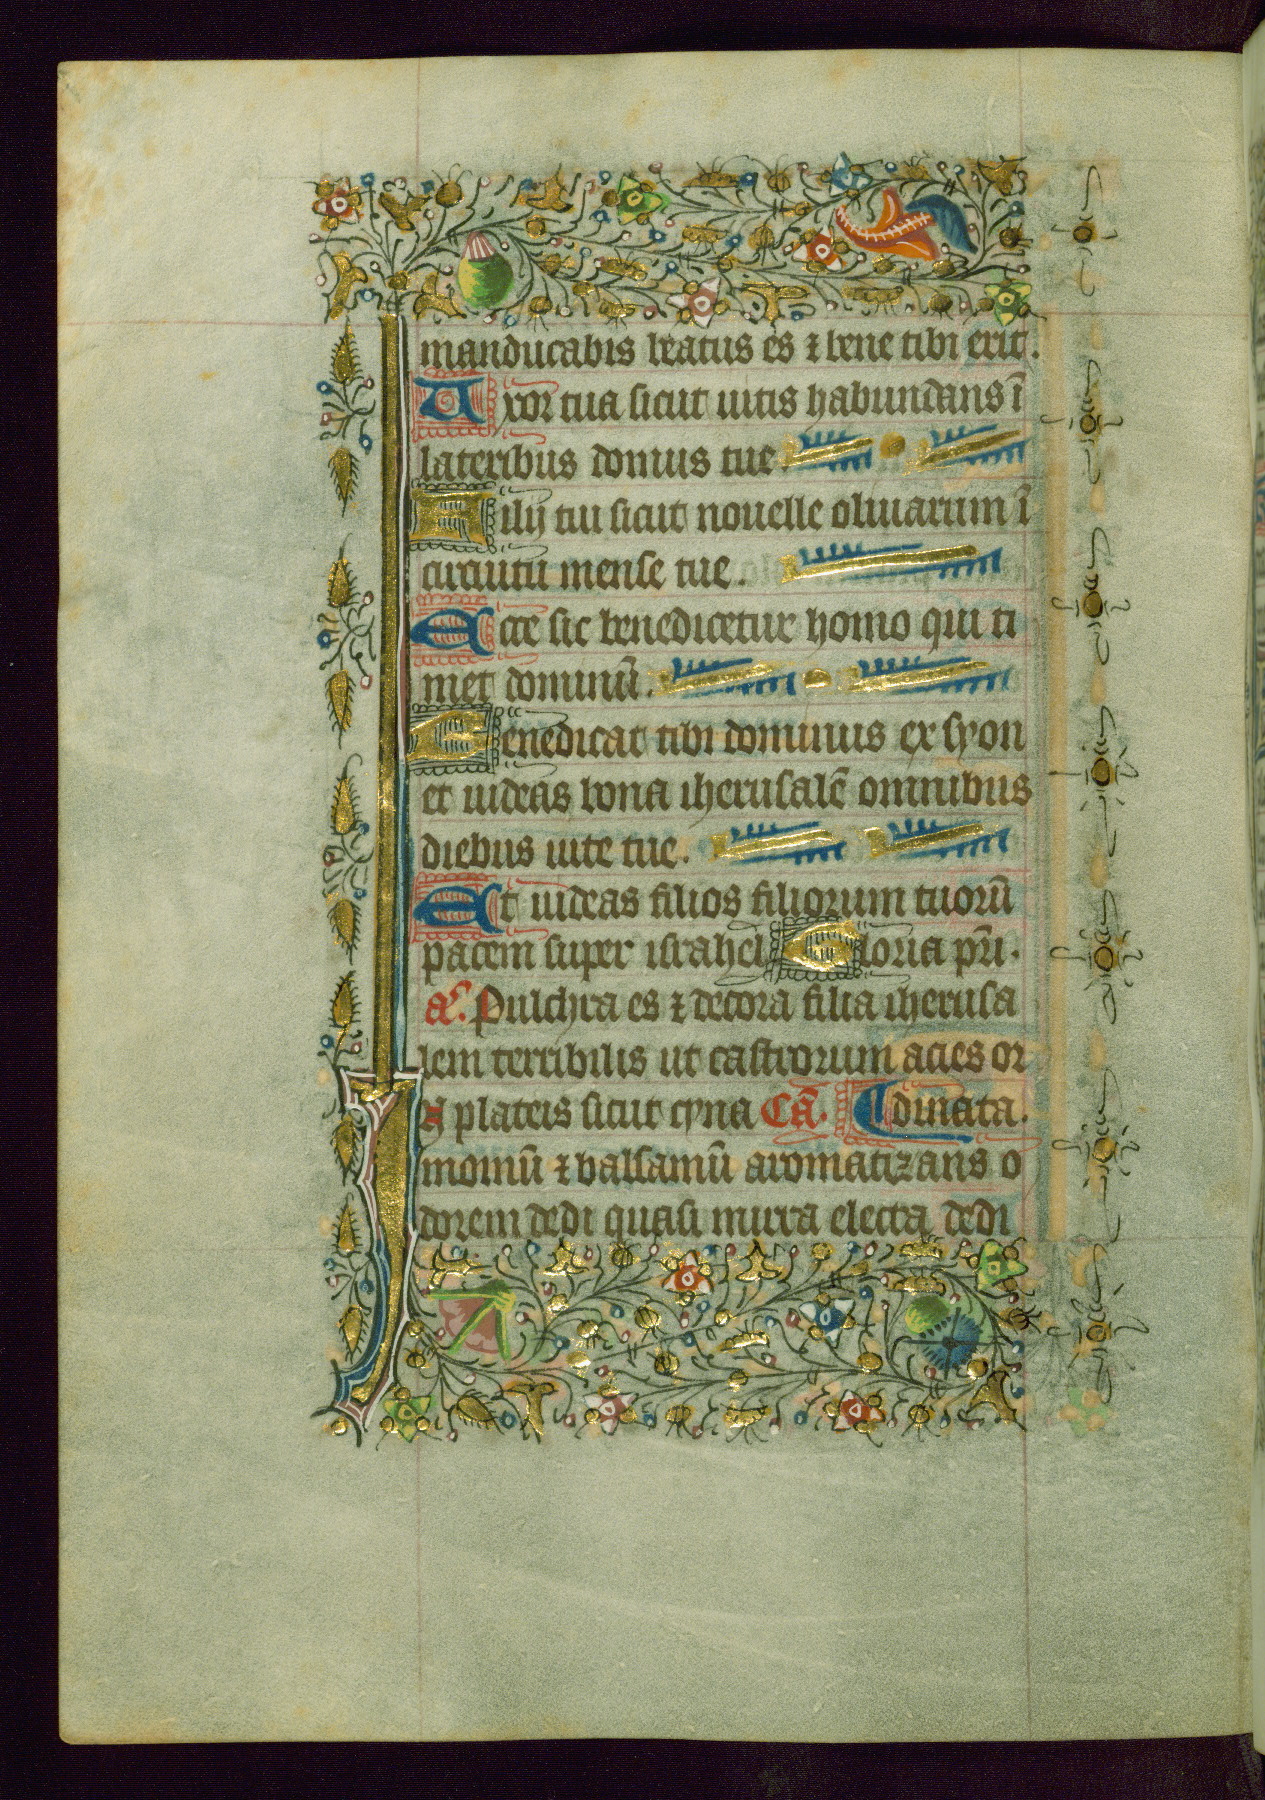 manducabis beatus es ⁊ bene tibi erit.
Uxor tua sicut uitis habundans ī
lateribus domus tue.
Filij tui sicut nouelle oliuarum ī
circuitu mense tue.
Ecce sic benedicetur homo qui ti
met dominū.
Benedicat tibi dominus ex syon
et uideas bona iherusalē omnibus
diebus uite tue.
Et uideas filios filiorum tuorū
pacem super israhel Gloria pr̄i.
a͛. Pulchra es ⁊ decora filia iherusa
lem terribilis ut castrorum acies or
plateis sicut cyna Ca̅. dinata.
momū ⁊ balsamū aromatizans o
dorem dedi quasi mirra electa dedi